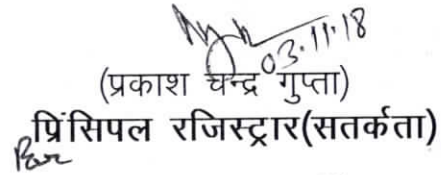 03.11.18
(प्रकाश चन्द्र गुप्ता)
प्रिंसिपल रजिस्ट्रार(सतर्कता)